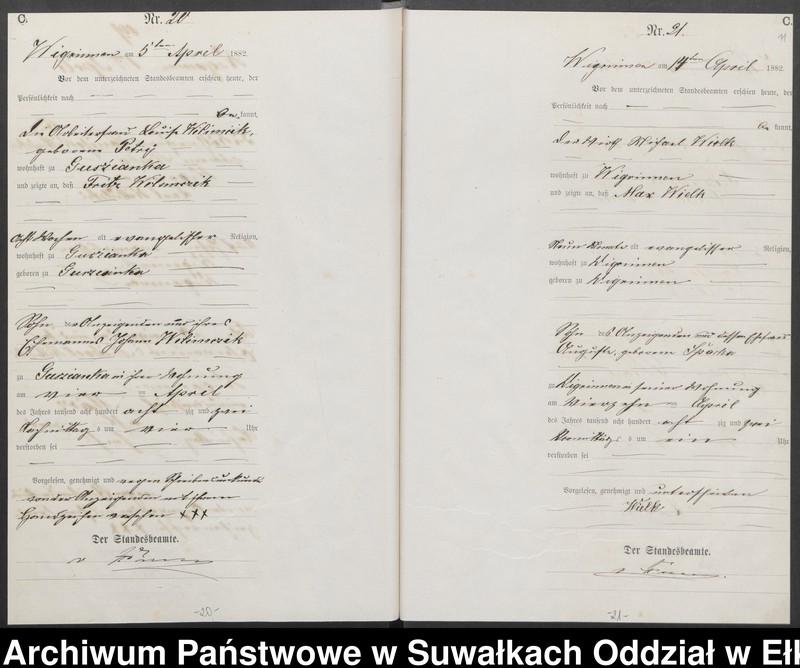 C.
Nr. 20
Wigrinnen am 5ten April 1882.
Vor dem unterzeichneten Standesbeamten erschien heute, der
Persönlichkeit nach
be kannt,
die Arbeiterfrau Louise
geborene Petry
wohnhaft zu Guszianka
und zeigte an, daß Fritz
acht Wochen alt evangelischer Religion,
wohnhaft zu Guszianka
geboren zu Guszianka
Sohn der Anzeigenden und ihres
Ehemannes Johann
zu Guszianka in ihrer Wohnung
am vier ten April
des Jahres tausend acht hundert acht zig und zwei
Nachmittags um vier Uhr
verstorben sei
Vorgelesen, genehmigt und wegen
von der Anzeigenden mit ihrem
Handzeichen versehen XXX
Der Standesbeamte.
-20-
C.
Nr. 21.
Wigrinnen am 14ten April 1882.
Vor dem unterzeichneten Standesbeamten erschien heute, der
Persönlichkeit nach
be kannt,
der Wirth Michael Wielk
wohnhaft zu Wigrinnen
und zeigte an, daß Max Wielk
Neun Monate alt evangelischer Religion,
wohnhaft zu Wigrinnen
geboren zu Wigrinnen
Sohn des Anzeigenden und dessen Ehefrau
Auguste, geborene
zu Wigrinnen in seiner Wohnung
am vierzehn ten April
des Jahres tausend acht hundert acht zig und zwei
Vormittags um ein Uhr
verstorben sei
Vorgelesen, genehmigt und unterschrieben
Wielk
Der Standesbeamte.
-21-
Archiwum Państwowe w Suwałkach Oddział w Eł